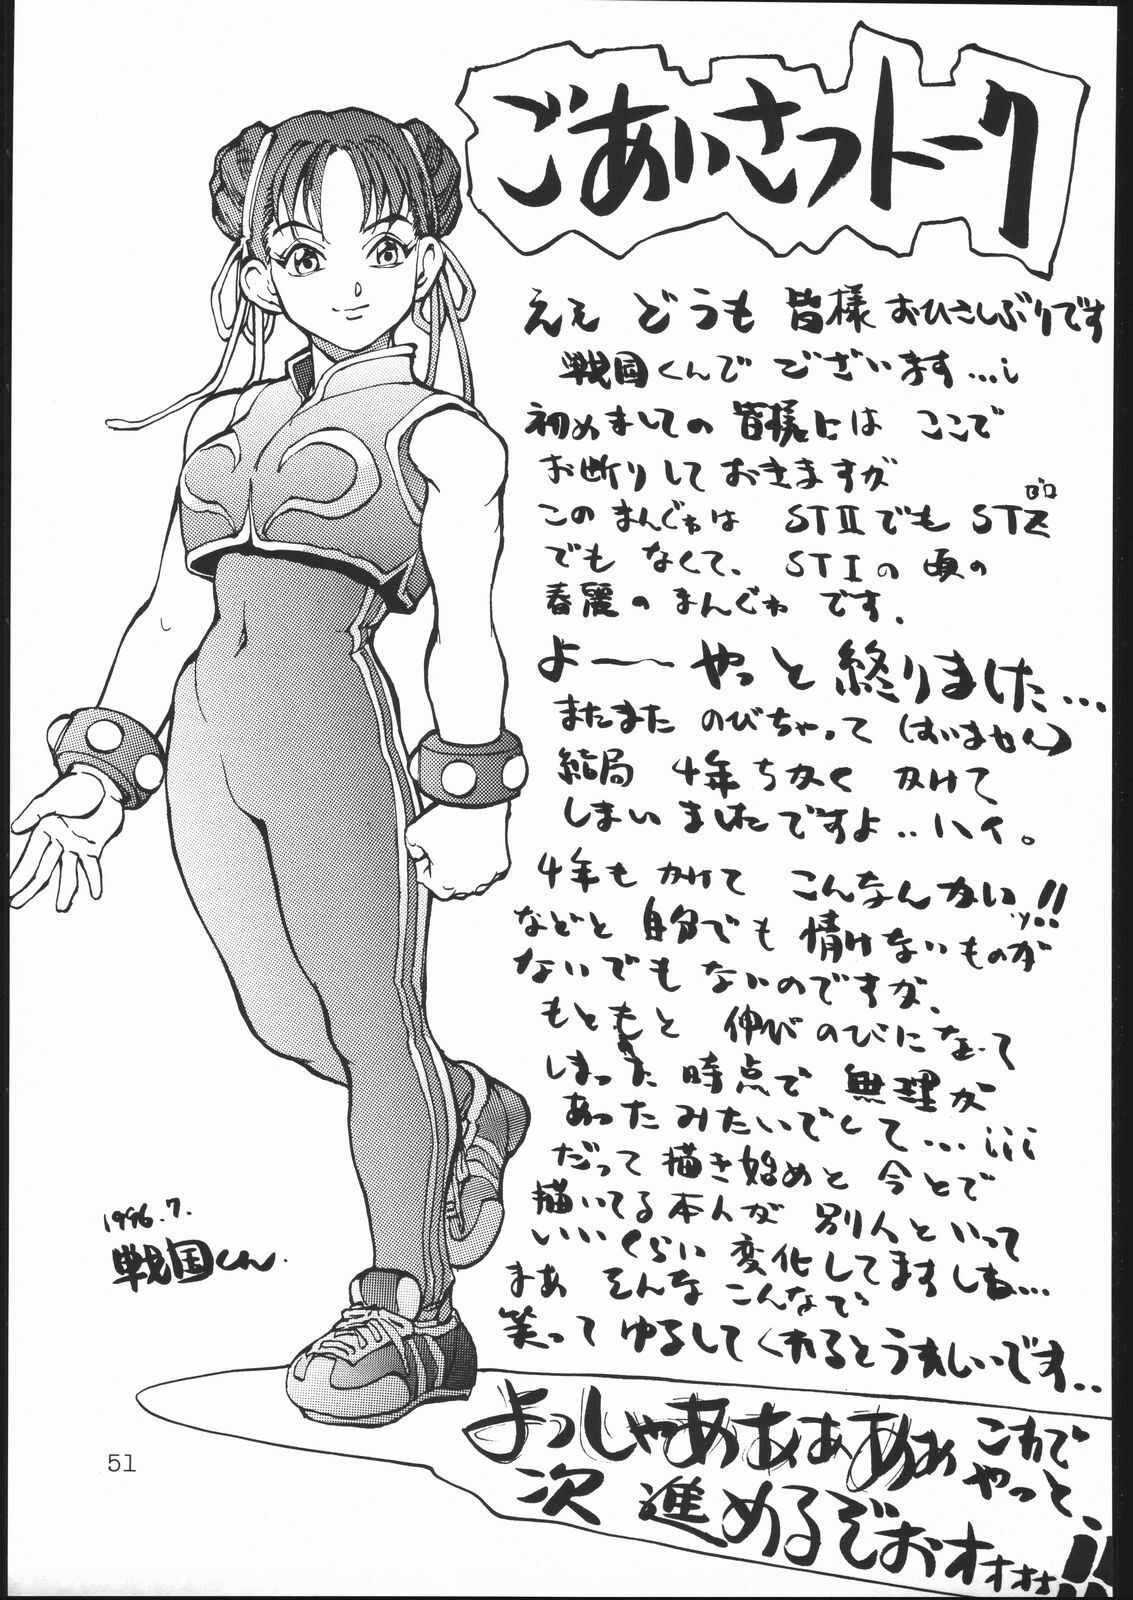 ごあいさつトーク
ええ どうも 皆様 おひさしぶりです
戦国くんで ございます…
初めましての 皆様には ここで
お断りして おきますが
このまんがは STⅡでも STZ
ゼロ
でも なくて、 STⅠの 頃の
春麗の まんがです.
よーーやっと 終りました…
またまた のびちゃって (すいません)
結局 4年ちかく かけて
しまいましたですよ..ハイ。
4年も かけて こんなんかいッ!!
などと 自分でも 情けないものが
ないでもないのですが、
もともと 伸びのびになって
しまった 時点で 無理が
あったみたいでして…
だって 描き始めと 今とで
描いてる本人が 別人といって
いいくらい 変化してますしね…
まあ そんなこんなで
笑って ゆるしてくれるとうれしいです..
よっしゃあああああ これで
やっと、
次 進めるぞおオォォォ!!
1996.7.
戦国くん.
51